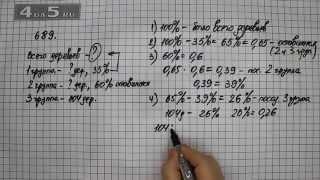 4ДО5.RU
689.
Всего деревьев - ?
1 группа - ? дер, 35%
2 группа - ? дер, 60% оставшихся
3 группа - 104 дер.
1) 100% - было всего деревьев
2) 100% - 35% = 65% = 0,65 - оставшиеся
(2 и 3 гр)
3) 60% = 0,6
0,65 · 0,6 = 0,39 - пос. 2 группа
0,39 = 39%
4) 65% - 39% = 26% - посад. 3 группа
104 - 26% 26% = 0,26
104